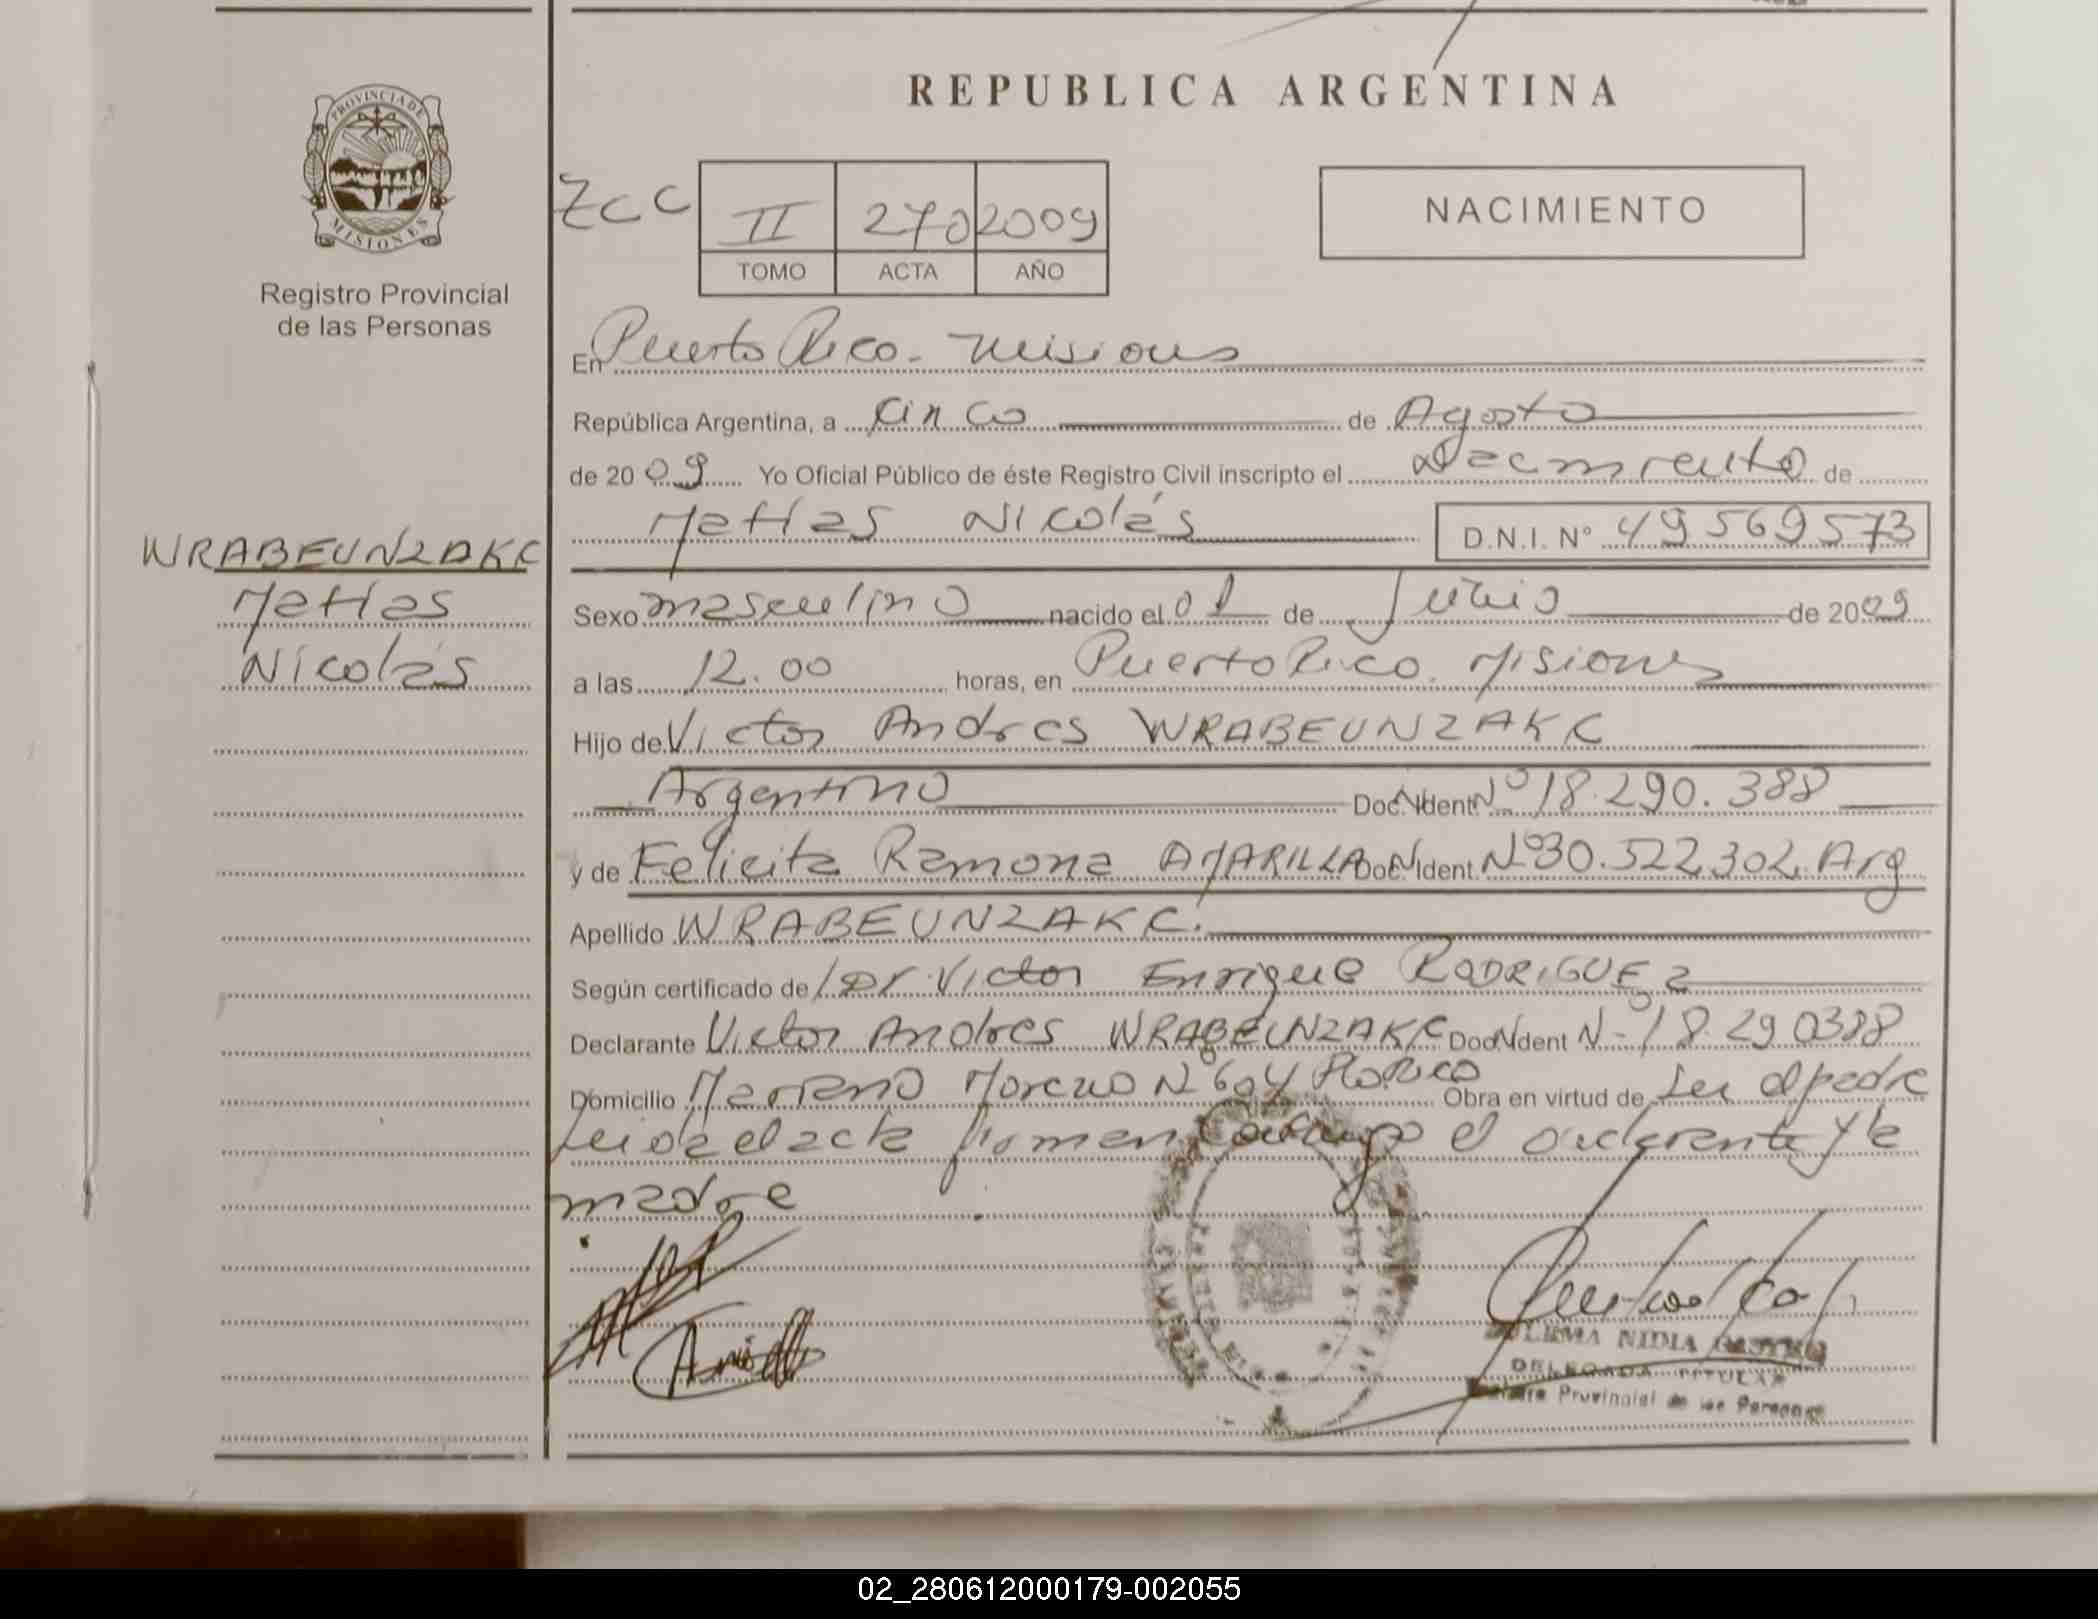 REPUBLICA ARGENTINA
PROVINCIA DE
MISIONES
Registro Provincial
de las Personas
ZCC
II 270 2009
TOMO ACTA AÑO
NACIMIENTO
En Puerto Rico - Misiones
República Argentina, a Cinco de Agosto
de 2009 Yo Oficial Público de éste Registro Civil inscripto el Nacimiento de
Matías Nicolás D.N.I. Nº 49569573
WRABEUNZAKC
Matías
Nicolás
Sexo masculino nacido el 01 de Junio de 2009
a las 12.00 horas, en Puerto Rico. Misiones
Hijo de Victor Andres WRABEUNZAKC
Argentino Doc. Ident Nº 18.290.388
y de Felicita Ramona AYARILLA Doc. Ident. Nº 30.522.302. Arg
Apellido WRABEUNZAKC.
Según certificado de Dr. Victor Enrique RODRIGUEZ
Declarante Victor Andres WRABEUNZAKC Doc Ident Nº 18.290388
Domicilio Mariano Moreno Nº 604 Pto Rico Obra en virtud de ser el padre
Leida el acta firman conmigo el declarante y la
madre
ZULEMA NIDIA
DELEGADA TITULAR
Provincial de las Personas
02_280612000179-002055